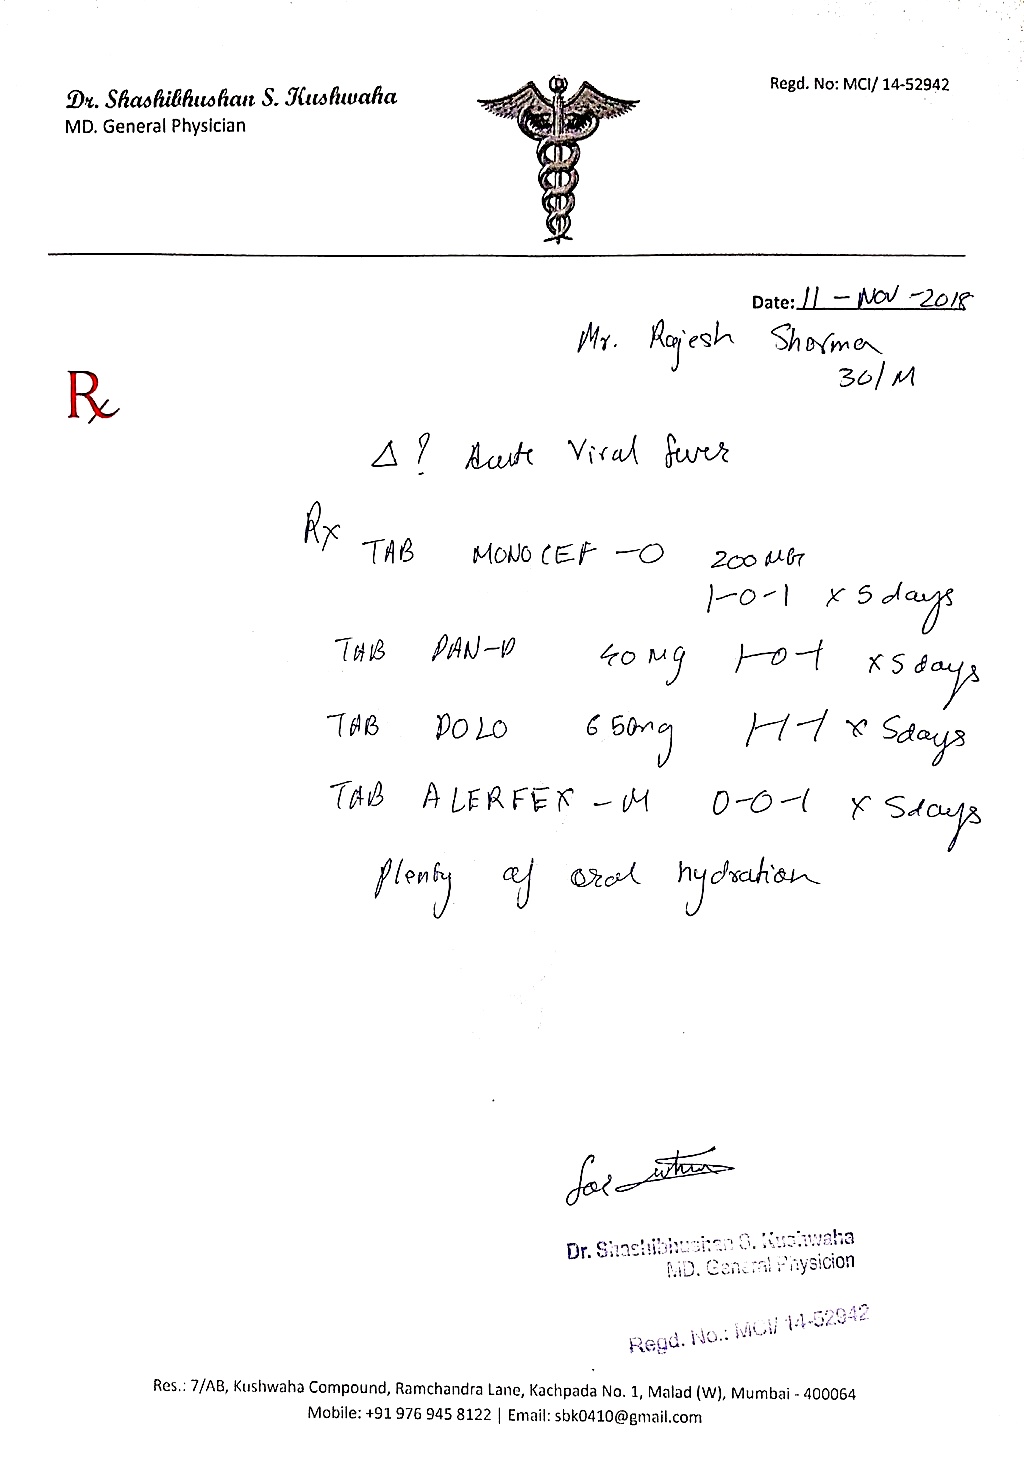 Dr. Shashibhushan S. Kushwaha
MD. General Physician
Regd. No: MCI/ 14-52942
Date: 11 - NOV - 2018
Mr. Rajesh Sharma
30/M
Rx
Δ ? Acute Viral fever
Rx
TAB MONOCEF - O 200 MG
1-0-1 x 5 days
TAB PAN-D 40 Mg 1-0-1 x 5 days
TAB DOLO 650mg 1-1-1 x 5days
TAB ALERFEX - M 0-0-1 x 5days
Plenty of oral hydration
Dr. Shashibhushan S. Kushwaha
MD. General Physicion
Regd. No.: MCI/ 14-52942
Res.: 7/AB, Kushwaha Compound, Ramchandra Lane, Kachpada No. 1, Malad (W), Mumbai - 400064
Mobile: +91 976 945 8122 | Email: sbk0410@gmail.com